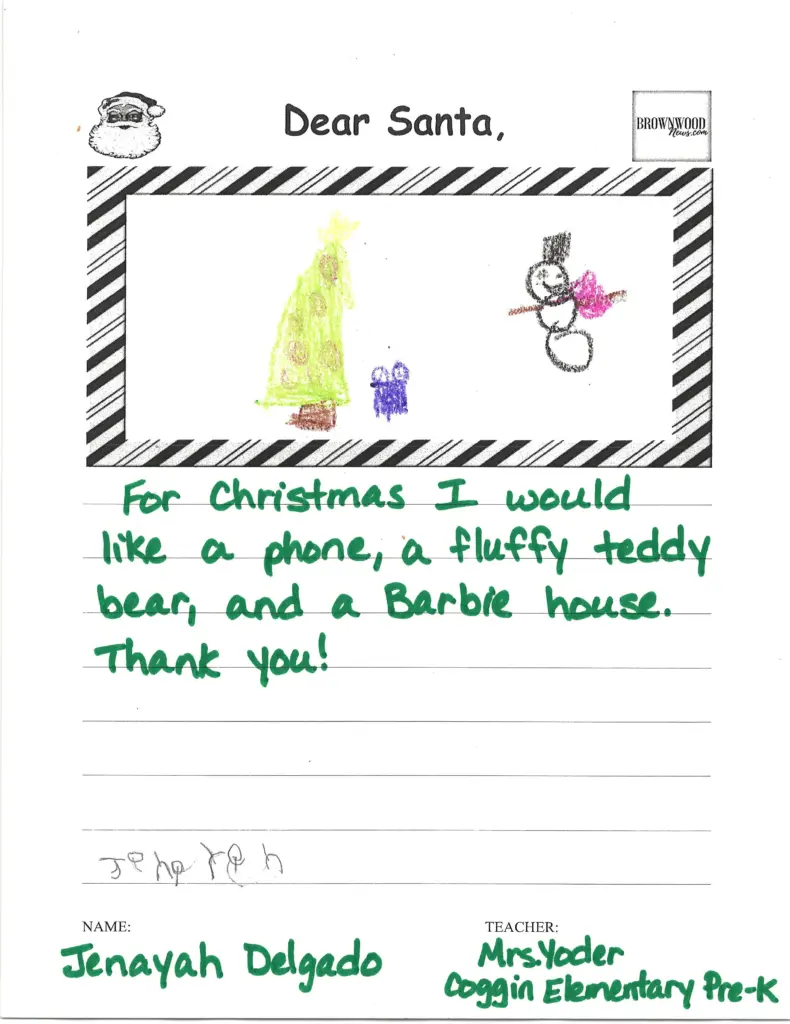 Dear Santa,
BROWNWOOD
News.com
For Christmas I would
like a phone, a fluffy teddy
bear, and a Barbie house.
Thank you!
Jenayah
NAME:
TEACHER:
Jenayah Delgado
Mrs. Yoder
Coggin Elementary Pre-K